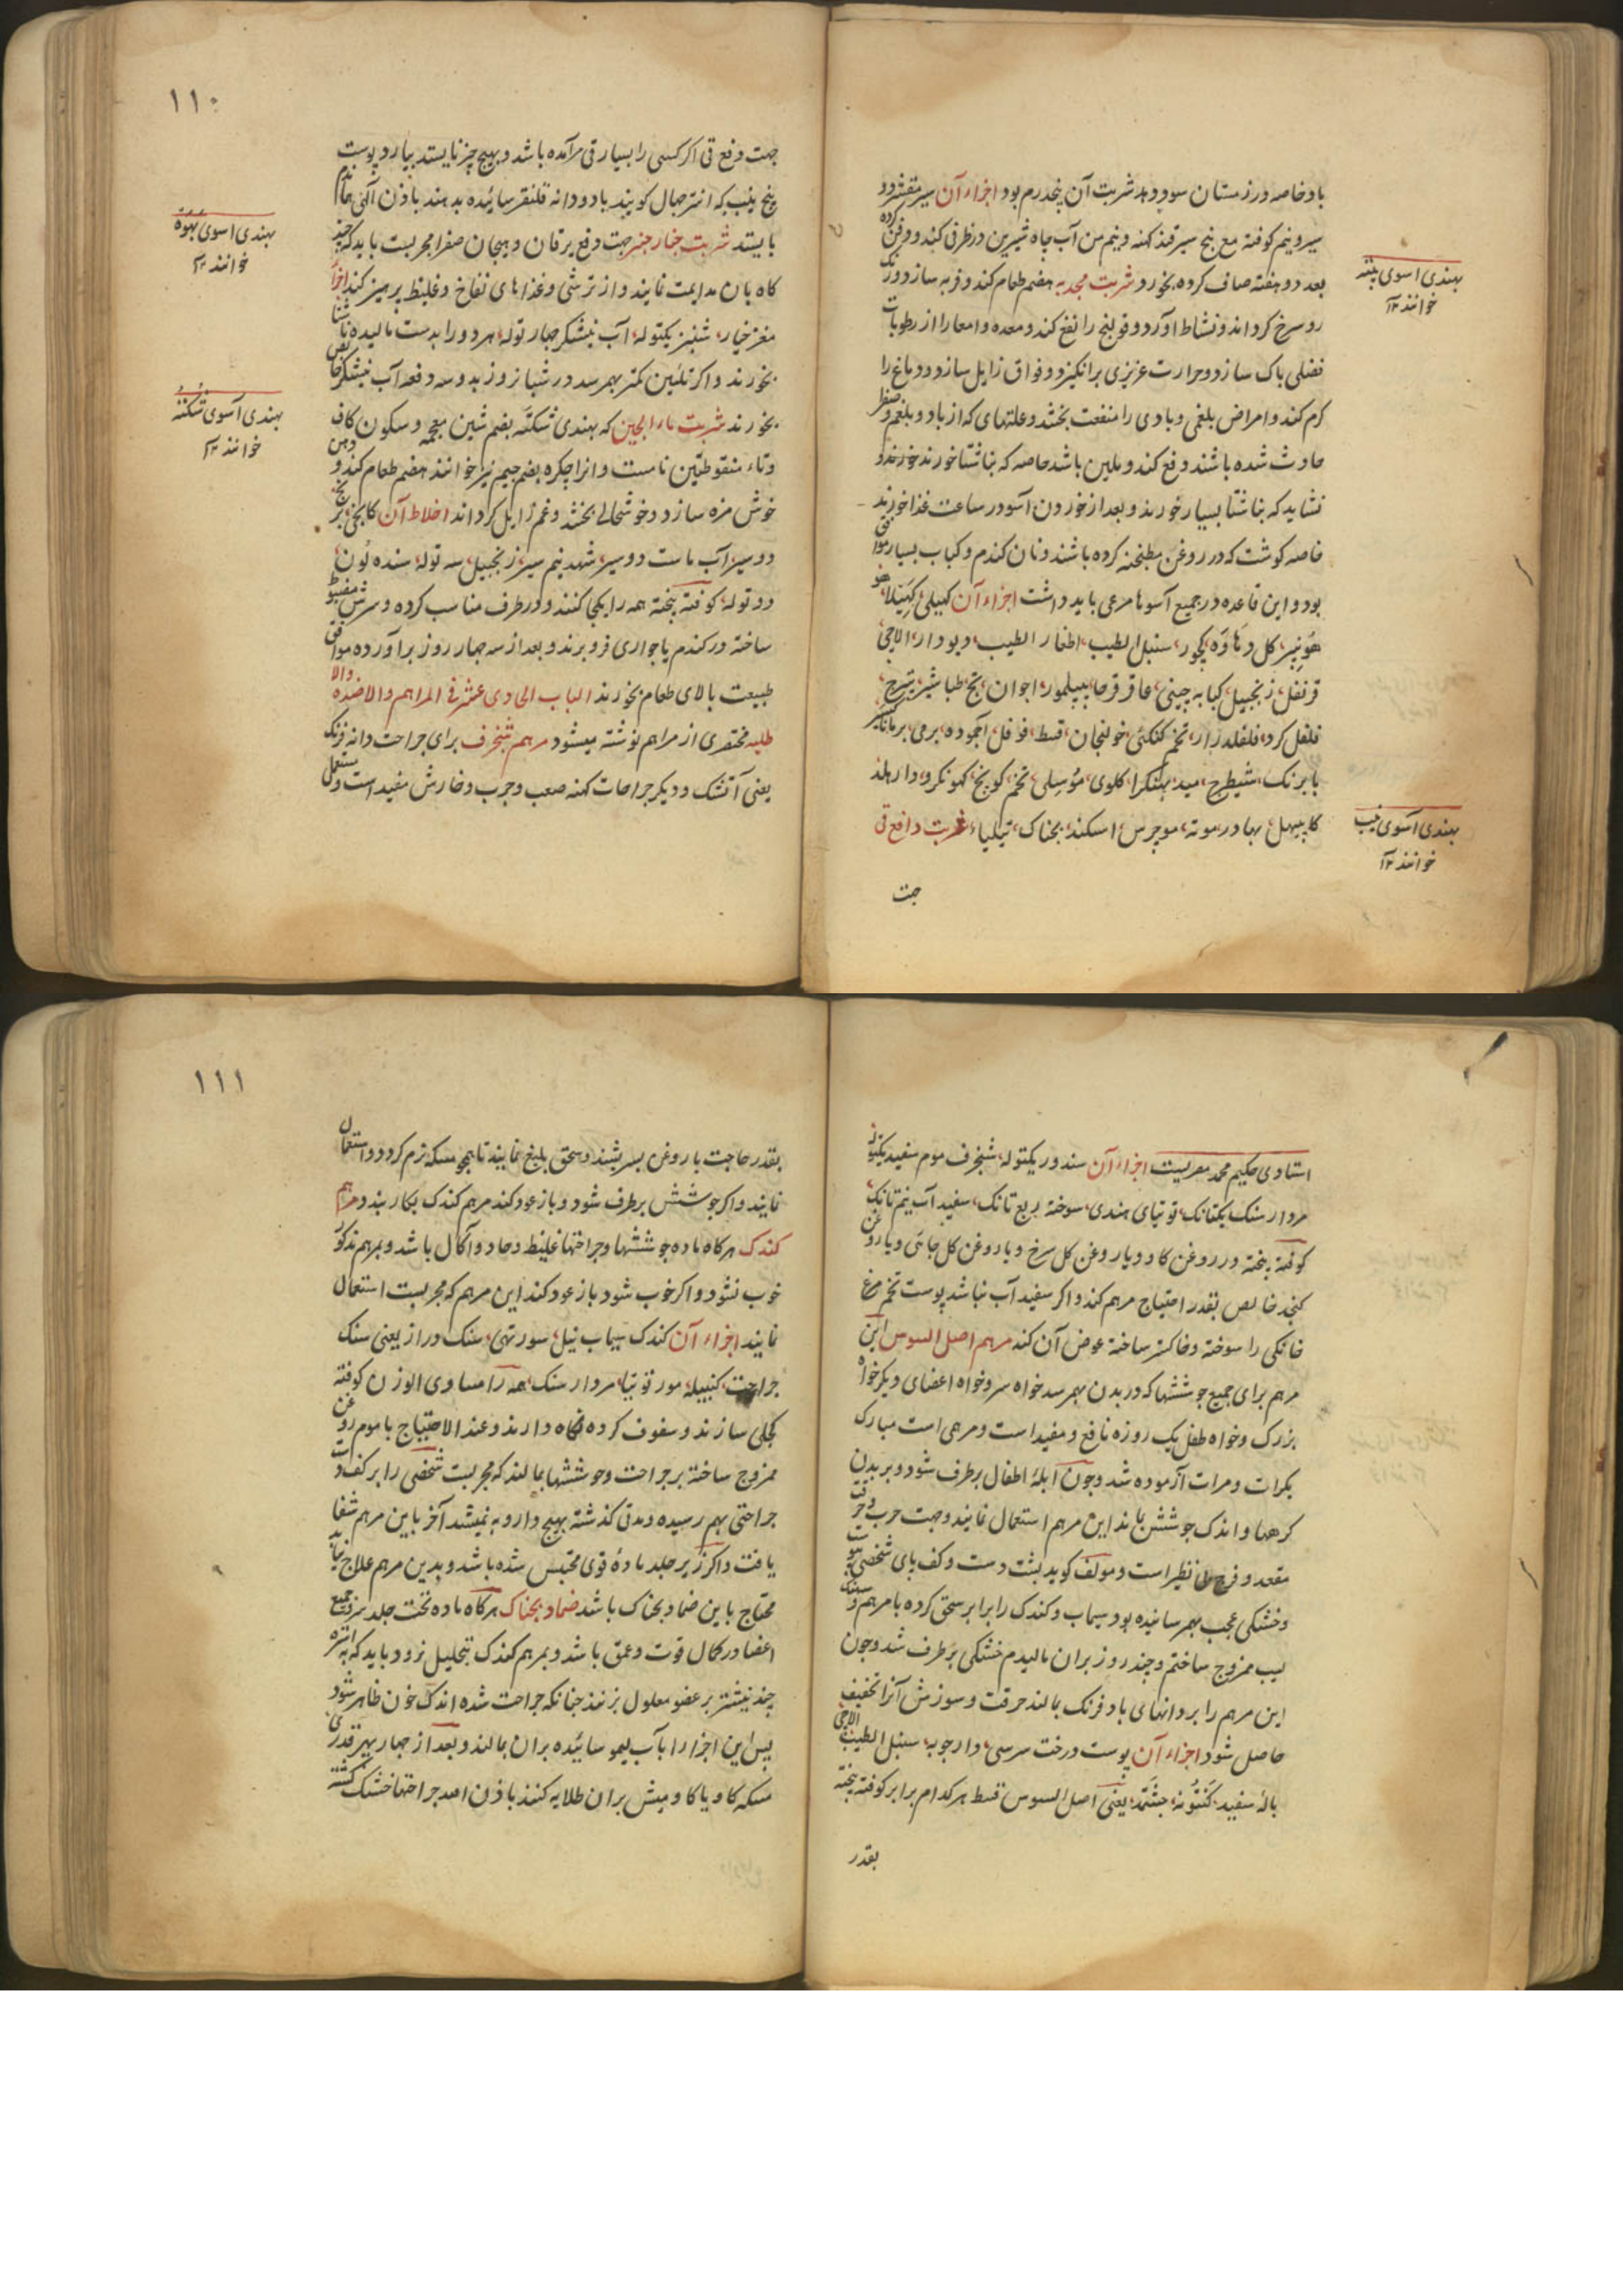 باد خاصه در زمستان سود دهد شربت آن پنجدرم بود اجزاء آن سیر مقشر دو
سیر و نیم کوفته مع پنج سیر قند کهنه و نیم من آب چاه شیرین در ظرفی کنند و دفن کرده
بعد دو هفته صاف کرده بخورد شربت مجد به هضم طعام کند و فربه سازد و رنک
رو سرخ کرداند و نشاط آورد و قولنج را نفع کند و معده و امعا را از رطوبات
فضلی پاک سازد و حرارت غریزی برانکیزد و فواق زایل سازد و دماغ را
کرم کند و امراض بلغمی و بادی را منفعت بخشد و علتهای که از باد و بلغم و صفرا
حادث شده باشند دفع کند و ملین باشد خاصه که بناشتا خورند خورند و
نشاید که بناشتا بسیار خورند و بعد از خوردن آسو در ساعت غذا خورند
خاصه کوشت که در روغن مطنجنه کرده باشند و نان کندم و کباب بسیار موافق
بود و این قاعده در جمیع آسوها مرعی باید داشت اجزاء آن کبیلی کهتیلا
هوبیر کل دهاوه کچور سنبل الطیب اظفار الطیب دیودار الاچی
قرنفل زنجبیل کبابه چینی عاقرقرحا پیپلمور اجوان تج طباشیر تیرج
فلفل کرد فلفلدراز تخم کتکتی خولنجان قسط فوفل اجموده برمی برمانک
بابرنک شیطرج مید بهنکرا کلوی موسلی تخم کونچ کهونکرو دارهلد
کاپیهل بهادر موته موچرس اسکند بجناک تیلیا شربت دافع قی
جت
بهندی اسوی پتنه
خوانند ۱۲
بهندی آسوی نیب
خوانند ۱۲
۱۱۰
جهت دفع قی اکر کسی را بسیار قی برآمده باشد و بهیچ چیز نایستد بیارد پوست
بیخ نیب که انتر چهال کویند با دو دانه فلنفر سائیده بدهند باذن الهی هماندم
بایستد شربت خیار جنبر جهت دفع یرقان و هیجان صفرا مجربست باید که چند
کاه بان مدایمت نمایند و از ترشی و غذاهای نفاخ و غلیظ پرهیز کنند اجزاء
مغز خیار شنبر یکتوله آب نیشکر چهار توله هر دو را بدست مالیده ناشتا
بخورند و اکر تلئین کمتر بهم رسد در شبانروز بدو سه دفعه آب نیشکر خالص
بخورند شربت ماء الجبن که بهندی شکته بضم شین معجمه و سکون کاف
و تاء منقوطتین نامست و انرا چکره بضم جیم نیز خوانند هضم طعام کند و دهن
خوش مزه سازد و خوشحالی بخشد و غم زایل کرداند اخلاط آن کانجی برنج
دو سیر آب ماست دو سیر شهد نیم سیر زنجبیل سه توله سنده لون
دو توله کوفته بیخته همه را یکجا کنند و در ظرف مناسب کرده و سرش مضبوط
ساخته در کندم یا جواری فرو برند و بعد از سه چهار روز برآورده موافق
طبیعت بالای طعام بخورند الباب الحادی عشر فی المراهم والاضمده والا
طلیه مختصری از مراهم نوشته میشود مرهم شنجرف برای جراحت دانه فرنک
یعنی آتشک و دیکر جراحات کهنه صعب و جرب و خارش مفیداست و مستعمل
بهندی اسوی بهوه
خوانند ۱۲
بهندی آسوی شکته
خوانند ۱۲
استادی حکیم محمد معربیت اجزاء آن سندور یکتوله شنجرف موم سفید یکتوله
مردار سنک یکتانک توتیای هندی سوخته ربع تانک سفیدآب نیم تانک
کوفته بیخته در روغن کاو و یا روغن کل سرخ و یا روغن کل چانتی و یا روغن
کنجد خالص بقدر احتیاج مرهم کند و اکر سفیدآب نباشد پوست تخم مرغ
خانکی را سوخته و خاکستر ساخته عوض آن کند مرهم اصل السوس این
مرهم برای جمیع جوششها که در بدن بهم رسد خواه سر و خواه اعضای دیکر خواه
بزرک و خواه طفل یک روزه نافع و مفیداست و مرهمی است مبارک
بکرات و مرات آزموده شد و چون آبلهٔ اطفال برطرف شود و بر بدن
کرهها و اندک جوشش بماند این مرهم استعمال نمایند و جهت جرب و حرقت
مقعد و فرج بی نظیر است و مولف کوید پشت دست و کف پای شخصی پوست
و خشکی عجب بهم رسانیده بود سیماب و کندک را برابر سحق کرده با مرهم سفیدک
لیب ممزوج ساختم و چند روز بران مالیدم خشکی برطرف شد و چون
این مرهم را بر دانهای باد فرنک بمالند حرقت و سوزش آنرا تخفیف
حاصل شود اجزاء آن پوست درخت سرسی دارچوب سنبل الطیب الاچی
باله سفید کنتونه جشتمد یعنی اصل السوس قسط هر کدام برابر کوفته بیخته
بقدر
۱۱۱
بقدر حاجت با روغن بسریشند و سحق بلیغ نمایند تا همچو مسکه نرم کردد و استعمال
نمایند و اکر جوشش برطرف شود و باز عود کند مرهم کندک بکار بند و مرهم
کندک هرکاه ماده جوششها و جراحتها غلیظ و حاد و آکال باشد و بمرهم مذکور
خوب نشود و اکر خوب شود باز عود کند این مرهم که مجربست استعمال
نمایند اجزاء آن کندک سیماب نیل سورتهی سنک دراز یعنی سنک
جراحت کنبیله مور توتیا مردار سنک همه را مساوی الوزن کوفته
کجلی سازند و سفوف کرده نکاه دارند و عند الاحتیاج با موم روغن
ممزوج ساخته بر جراحت و جوششها بمالند که مجربست شخصی را بر کف دست
جراحتی بهم رسیده و مدتی کذشته بهیچ دارو به نمیشد آخر باین مرهم شفا
یافت و اکر زیر جلد مادهٔ قوی محتبس شده باشد و بدین مرهم علاج نیابد
محتاج باین ضماد بچناک باشد ضماد بچناک هرکاه ماده تحت جلد سر و جمیع
اعضا در کمال قوت و عمق باشد و بمرهم کندک بتحلیل نرود باید که به استره
چند نیشتر بر عضو معلول بزنند چنانکه جراحت شده اندک خون ظاهر شود
پس این اجزا را بآب لیمو سائیده بران بمالند و بعد از چهار پهر قدری
مسکه کاو یا کاومیش بران طلایه کنند باذن الله جراحتها خشک کشته